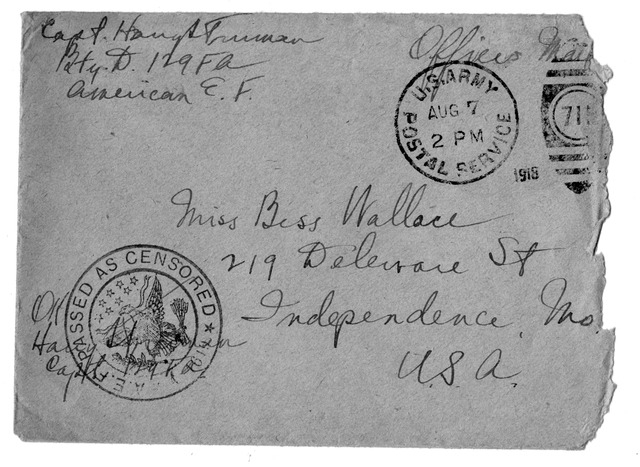 Capt. Harry S Truman
Bty. D. 129 F A
American E. F.
Officers Mail
U.S. ARMY
AUG 7
2 PM
POSTAL SERVICE
1918
711
Miss Bess Wallace
219 Deleware St
Independence, Mo.
U.S.A.
PASSED AS CENSORED
A.E.F.
OK
Harry S Truman
Capt. 129 F A